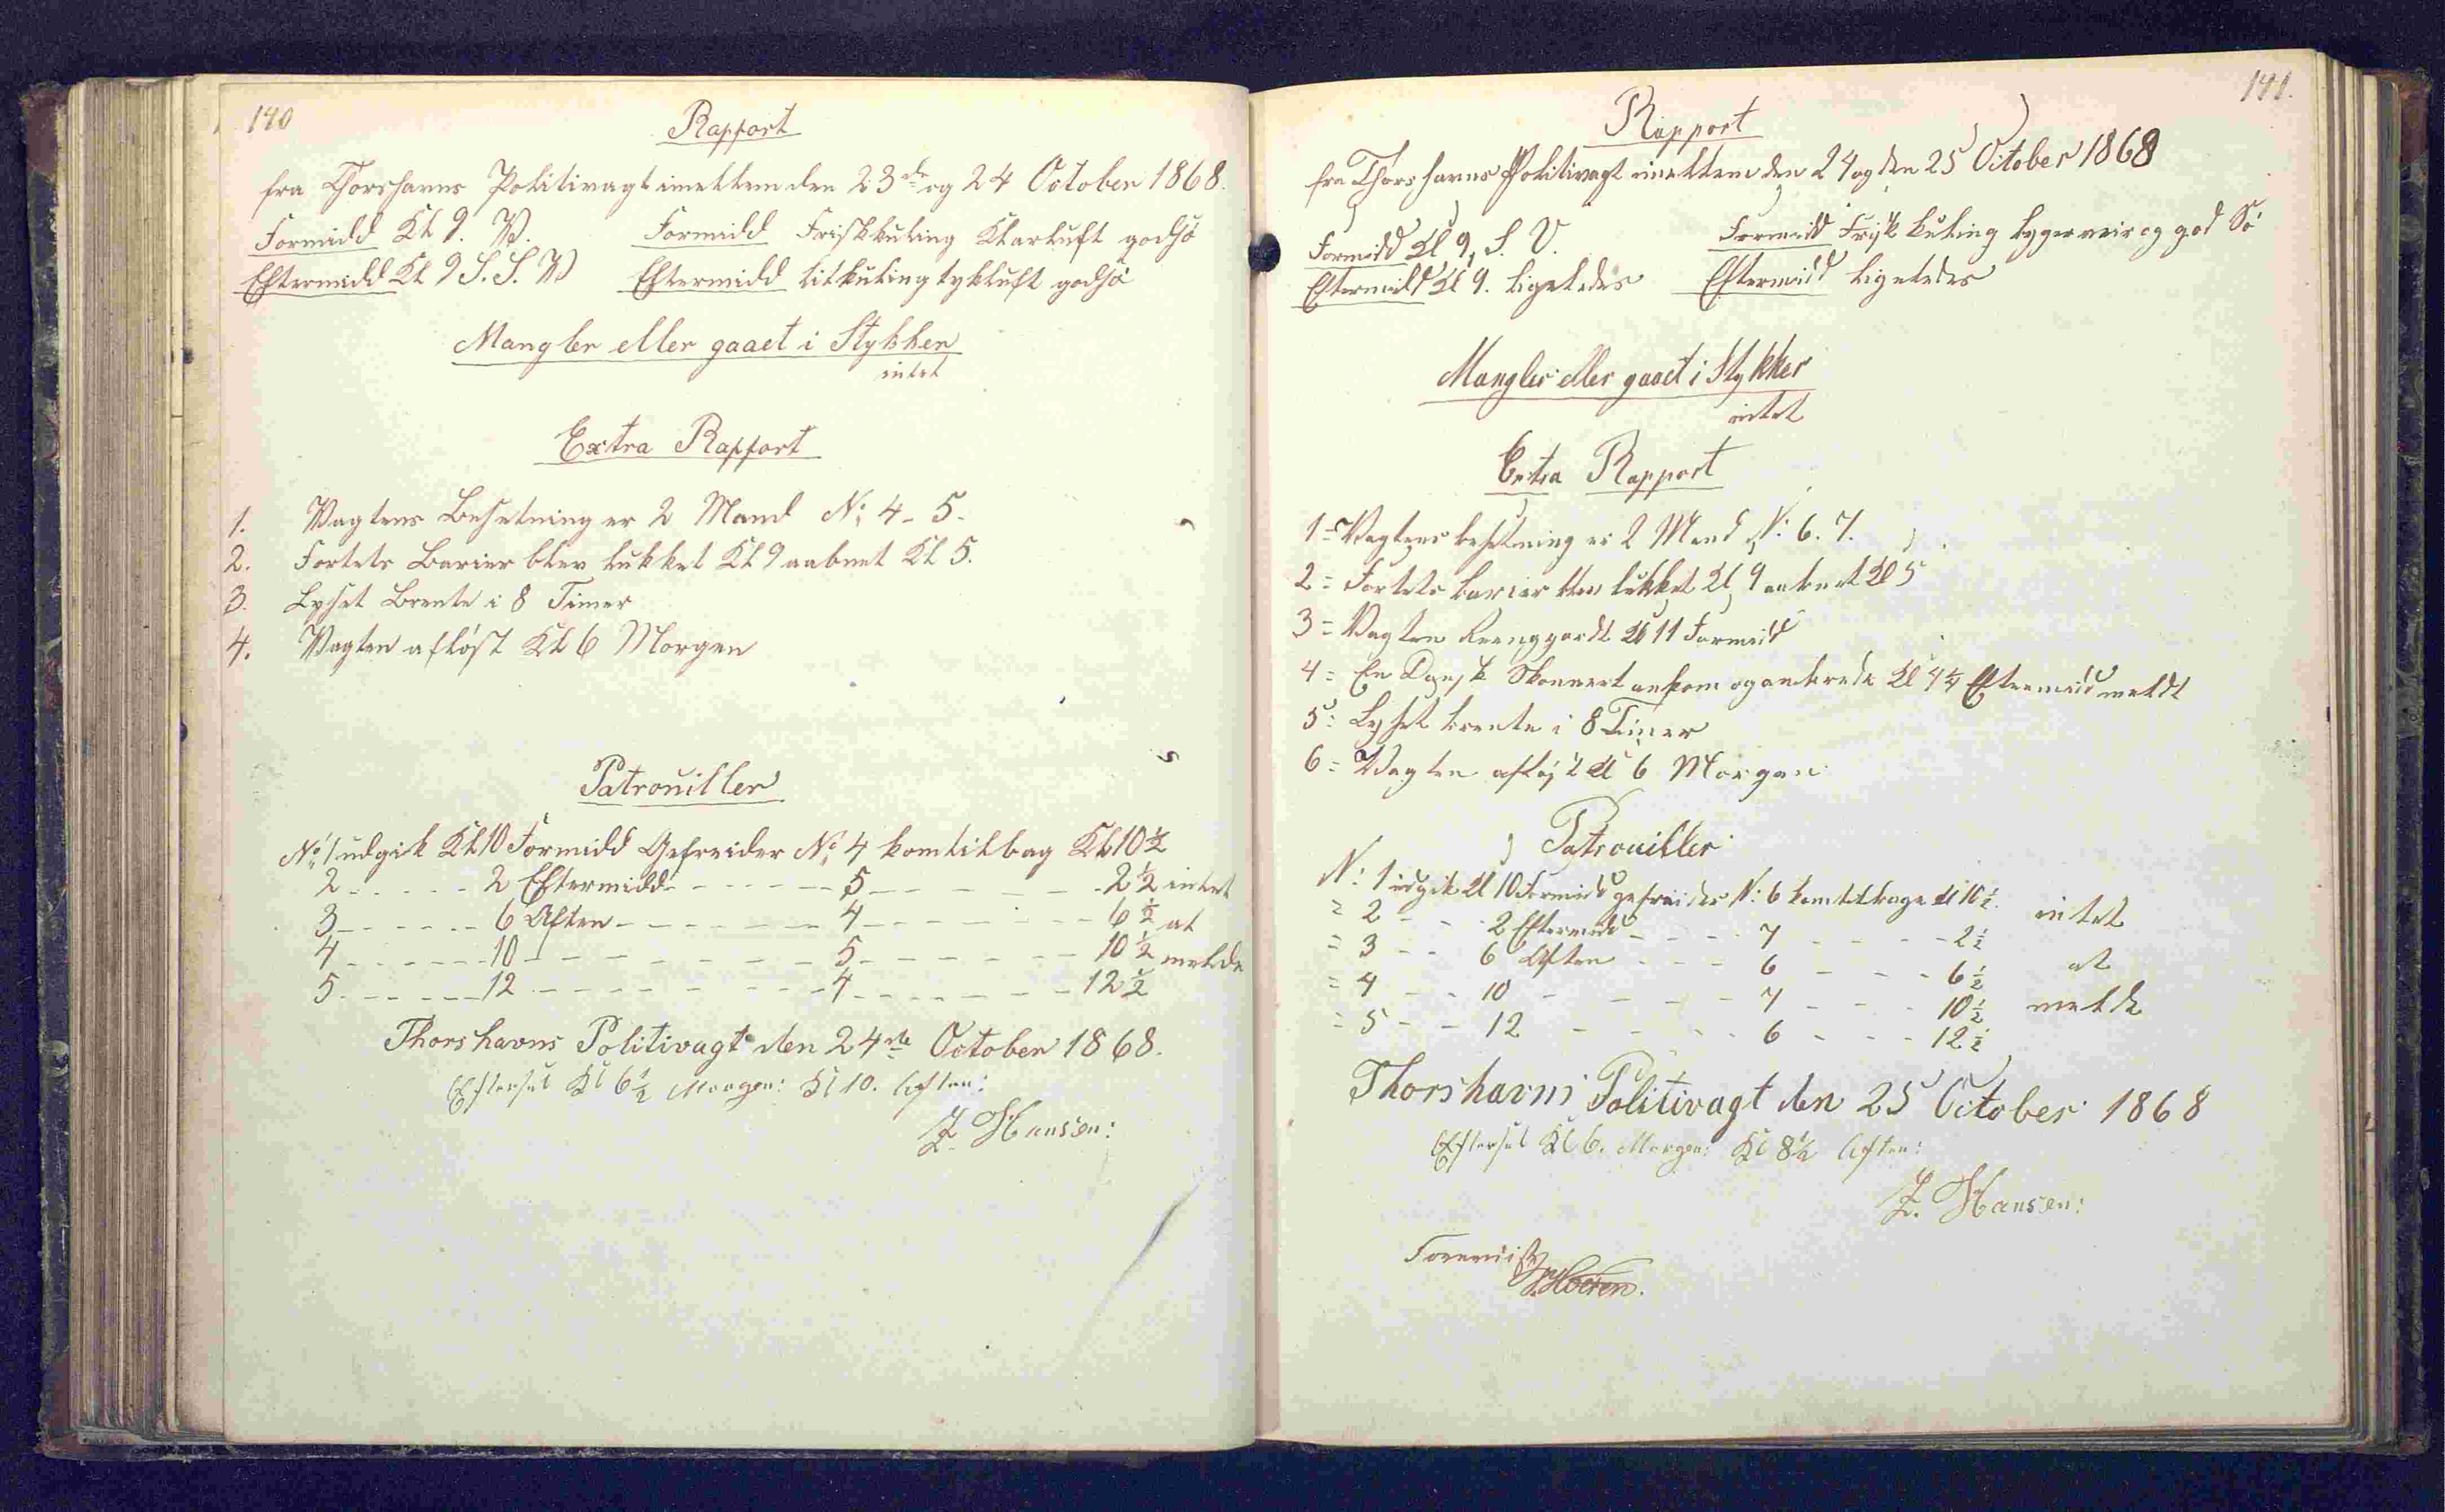 140
Rapport
fra Thorshavns Politivagt imellem den 23de og 24 October 1868.
Formidd Kl 9. V. Formidd Friskkuling Klarluft godsø
Eftermidd Kl 9 S.S.V Eftermidd litkuling tykluft godsø
Mangler eller gaaet i Stykker
intet
Extra Rapport
1. Vagtens Besetning er 2 Mand No; 4 - 5.
2. Fortets Barier blev lukket Kl 9 aabnet Kl 5.
3. Lyset Brente i 8 Timer
4. Vagten afløst Kl 6 Morgen
Patrouiller
No; 1 udgik Kl 10 Formidd Gefreider No; 4 kom tilbag Kl 10 1/2
2 - - - - - 2 Eftermidd - - - - - - 5 - - - - - - 2 1/2 intet
3 - - - - - 6 Aften - - - - - - 4 - - - - - - 6 1/2 at
4 - - - - - 10 - - - - - - 5 - - - - - - 10 1/2 melde
5 - - - - - 12 - - - - - - 4 - - - - - - 12 1/2
Thorshavns Politivagt den 24de October 1868.
Efterset Kl 6 1/2 Morgen: Kl 10. Aften:
Z. Hansen:
141.
Rapport
fra Thorshavns Politivagt imellem den 24 og den 25 October 1868
Formidd Kl 9, S. V. Formidd Frisk kuling bygerveir og god Sø
Eftermidd Kl 9. ligeledes Eftermidd ligeledes
Mangler eller gaaet i Stykker
intet
Extra Rapport
1 = Vagtens besetning er 2 Mand N: 6. 7.
2 = Fortets barier blev lukket Kl 9 aabnet Kl 5
3 = Vagten Reengjordt Kl 11 Formidd
4 = En Dansk Skonnert ankom og ankrede Kl 4 1/4 Eftermidd meldt
5 = Lyset brente i 8 Timer
6 = Vagten afløst Kl 6 Morgen
Patrouiller
N: 1 udgik Kl 10 Formidd gefreider N: 6 kom tilbage Kl 10 1/2. intet
= 2 - - - 2 Eftermidd - - - - 7 - - - - 2 1/2
= 3 - - 6 Aften - - - 6 - - - 6 1/2 at
= 4 - - 10 - - - - 7 - - - 10 1/2 melde
= 5 - - 12 - - - - 6 - - - 12 1/2
Thorshavns Politivagt den 25 October 1868
Efterset Kl 6. Morgen: Kl 8 1/2 Aften:
Z. Hansen:
Forevist